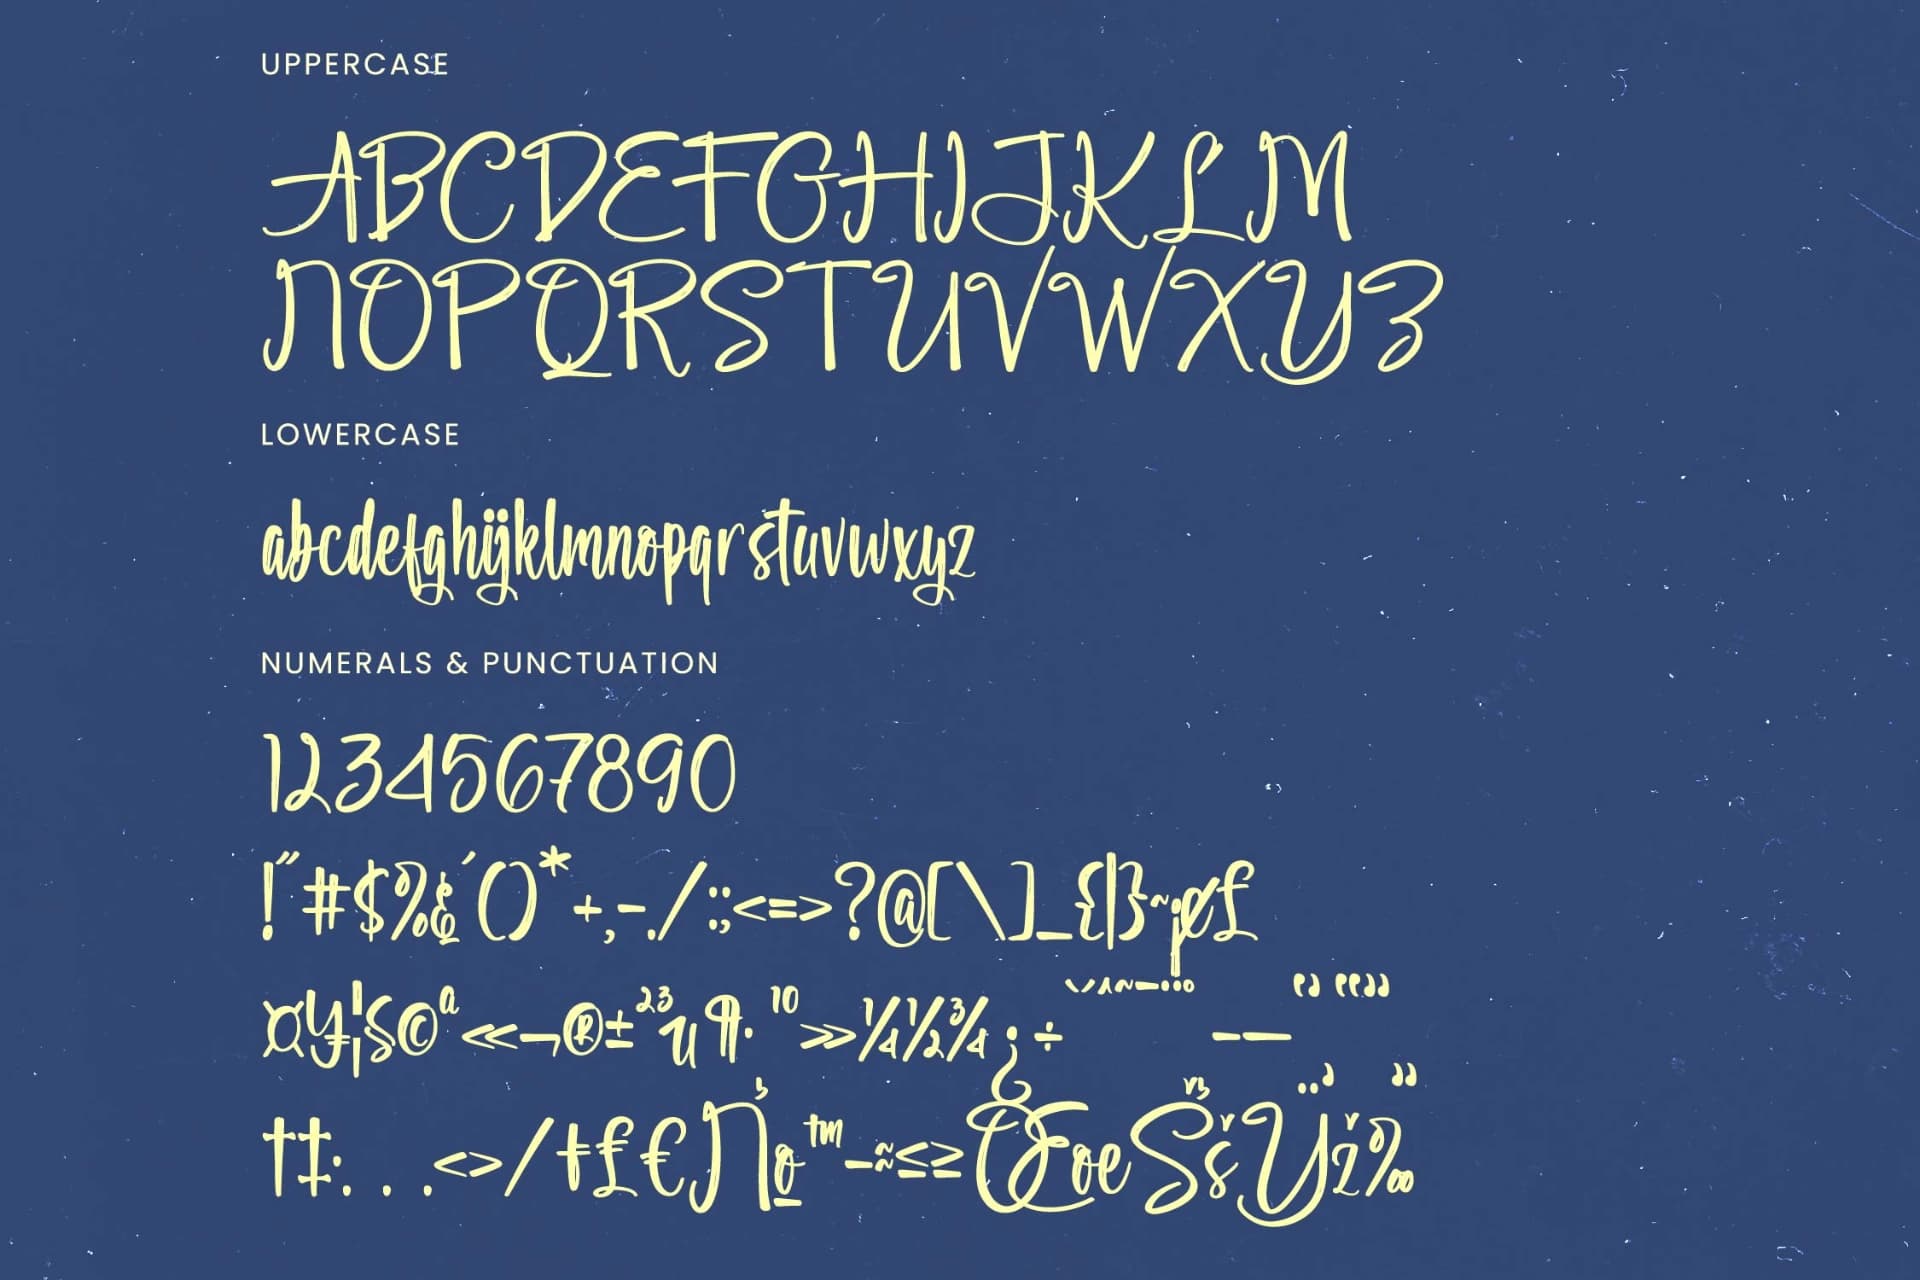 UPPERCASE
ABCDEFGHIJKLM
NOPQRSTUVWXYZ
LOWERCASE
abcdefghijklmnopqrstuvwxyz
NUMERALS & PUNCTUATION
1234567890
!"#$%&'()*+,-./:;<=>?@[\]_{|}~¡¢£
¤¥¦§©ª«¬®±²³µ¶·¹º»¼½¾¿÷ – — ‘’ “”
†‡•...‹›⁄ŧ₤€№™−≈≤≥ŒœŠšŸž‰